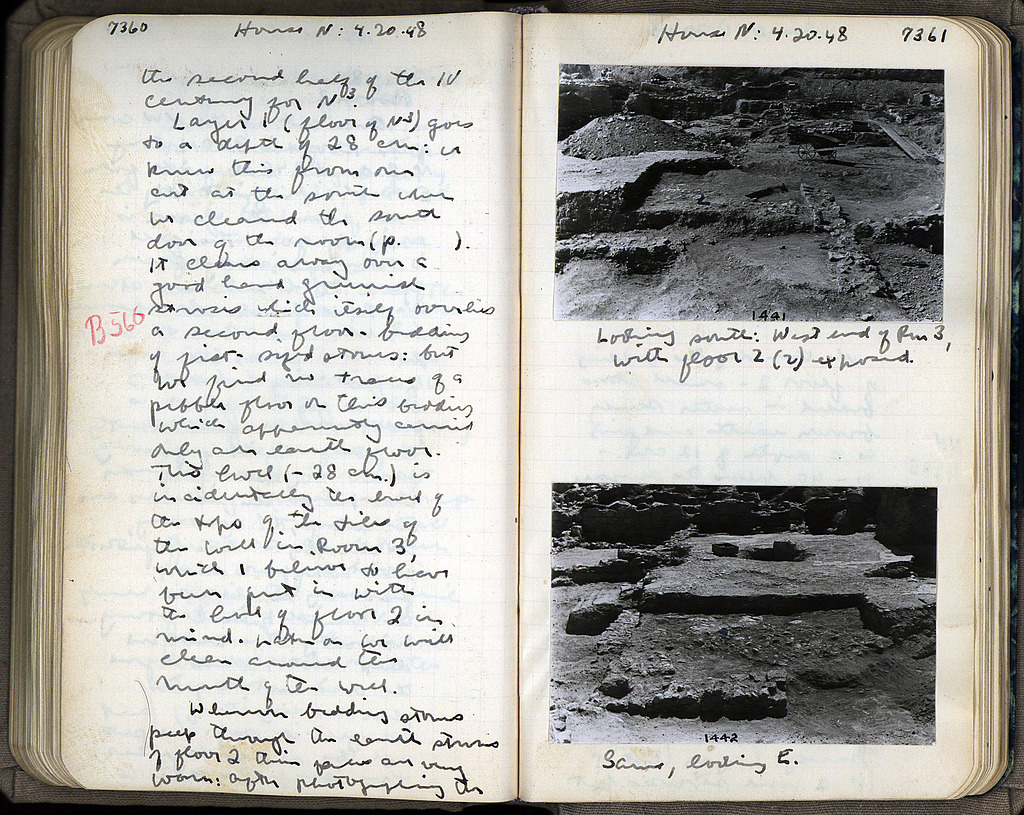 7360 House N: 4.20.48
the second half of the IV
century for N³.
Layer 1 (floor of N³) goes
to a depth of 28 cm: we
know this from our
cut at the south where
we cleaned the south
door of the room (p. ).
It cleans away over a
good hard greenish
strosis which itself overlies
a second floor-bedding
of fist-sized stones: but
we find no traces of a
pebble floor on this bedding
which apparently carried
only an earth floor.
This level (-28 cm.) is
incidentally the level of
the tops of the tiles of
the well in Room 3,
which I believe to have
been put in with
the level of floor 2 in
mind. Later on we will
clean around the
mouth of the well.
Wherever bedding stones
peep through the earth strosis
of floor 2 they are very
worn: after photographing the
B 566
House N: 4.20.48 7361
1441
Looking south: West end of Rm 3,
with floor 2 (2) exposed.
1442
Same, looking E.